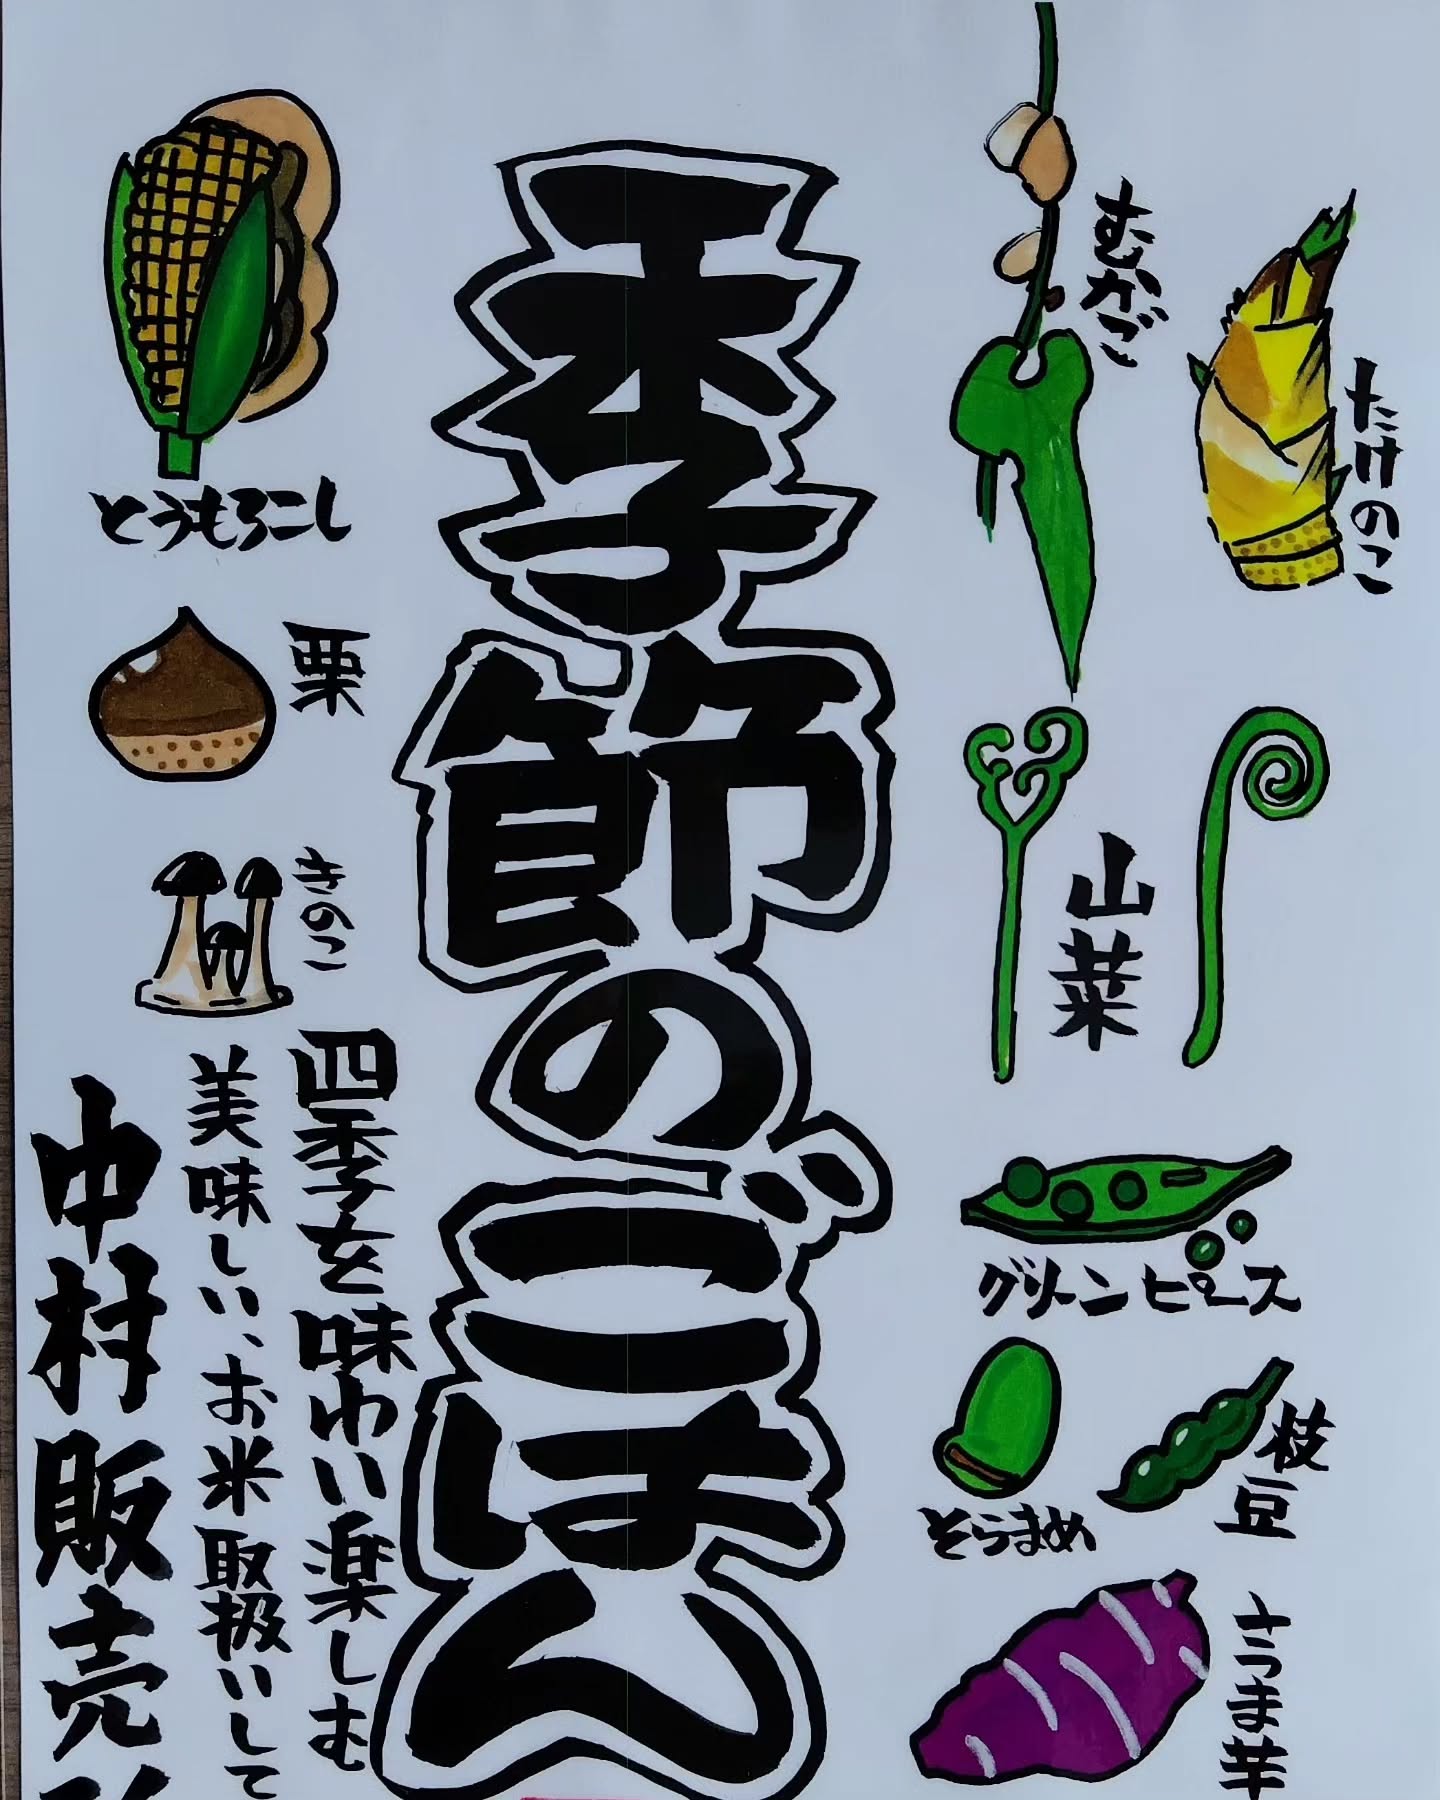 むかご
たけのこ
山菜
グリーンピース
そらまめ
枝豆
さつま芋
季節のごはん
とうもろこし
栗
きのこ
四季を味わい楽しむ
美味しい、お米取扱いして
中村販売